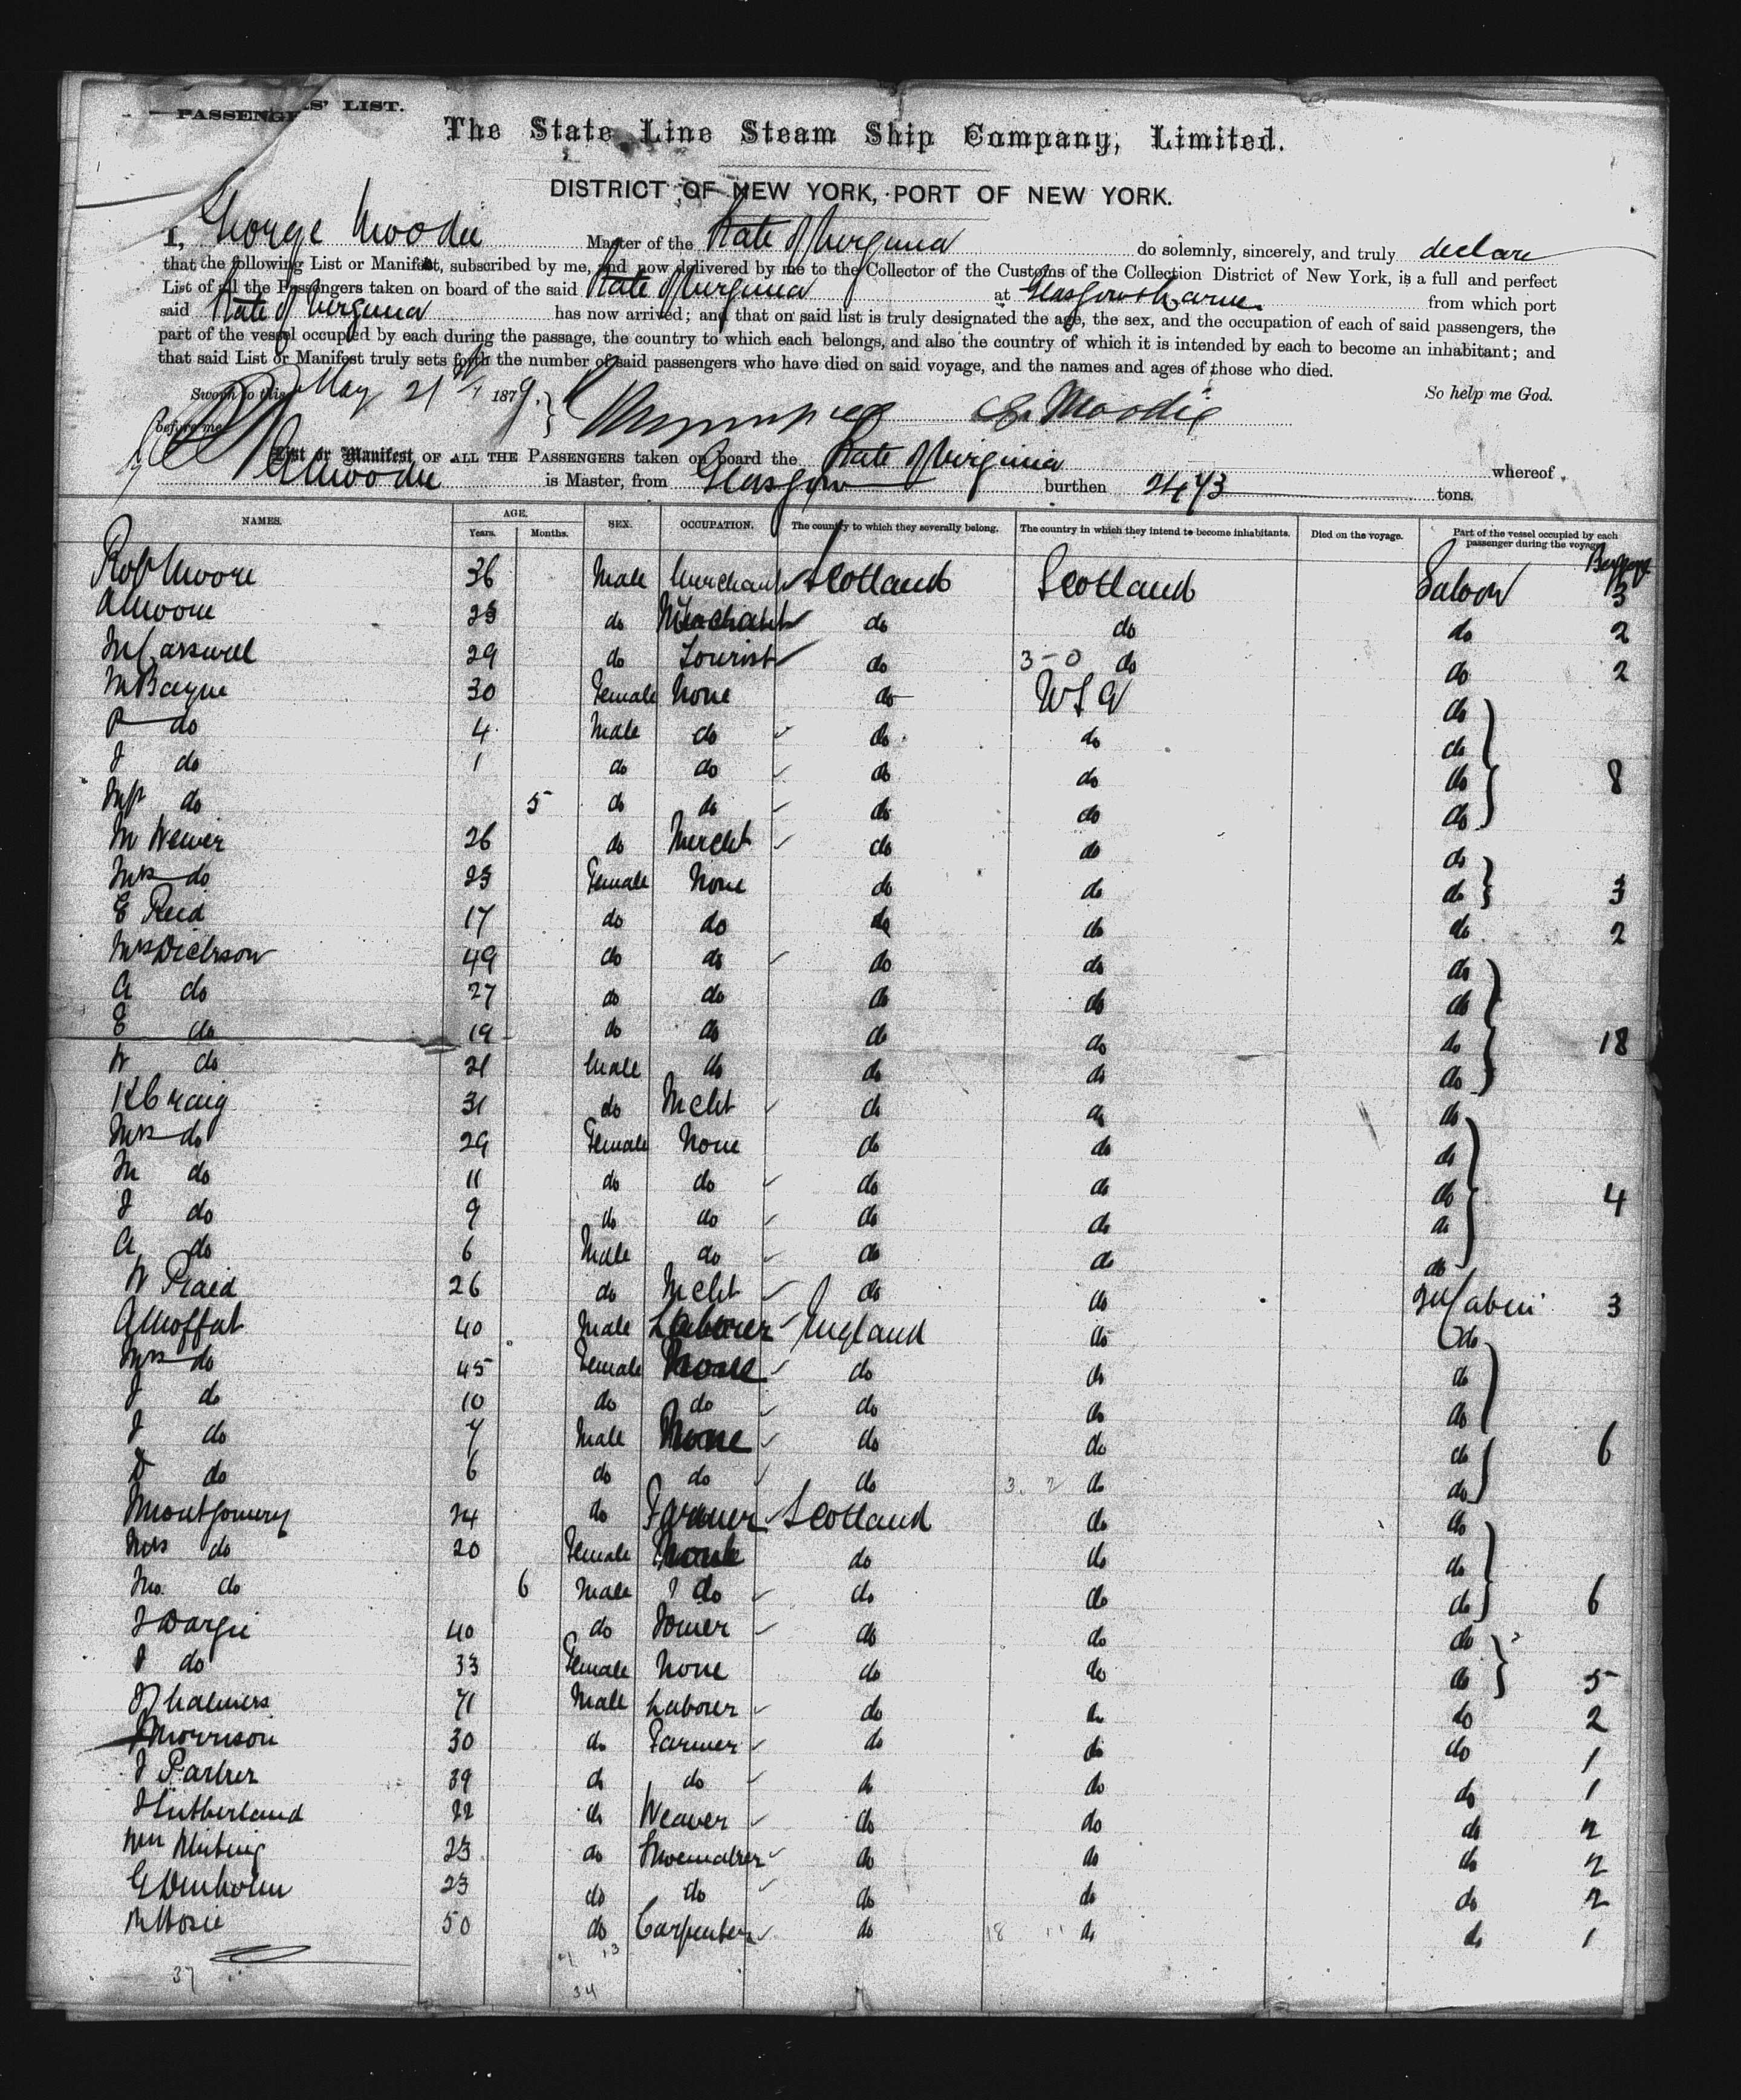 PASSENGERS' LIST.
The State Line Steam Ship Company, Limited.
DISTRICT OF NEW YORK, PORT OF NEW YORK.
I, George Moodie Master of the State of Virginia do solemnly, sincerely, and truly declare
that the following List or Manifest, subscribed by me, and now delivered by me to the Collector of the Customs of the Collection District of New York, is a full and perfect
List of all the Passengers taken on board of the said State of Virginia at Glasgow & Larne from which port
said State of Virginia has now arrived; and that on said list is truly designated the age, the sex, and the occupation of each of said passengers, the
part of the vessel occupied by each during the passage, the country to which each belongs, and also the country of which it is intended by each to become an inhabitant; and
that said List or Manifest truly sets forth the number of said passengers who have died on said voyage, and the names and ages of those who died.
Sworn to this May 21st 1879. So help me God.
before me G. Moodie
List or Manifest OF ALL THE PASSENGERS taken on board the State of Virginia whereof
G Moodie is Master, from Glasgow burthen 2473 tons.
NAMES. AGE. Years. Months. SEX. OCCUPATION. The country to which they severally belong. The country in which they intend to become inhabitants. Died on the voyage. Part of the vessel occupied by each passenger during the voyage. Baggage
Robt Moore 36 Male Merchant Scotland Scotland Saloon 3
A Moore 25 do Merchant do do do 2
M Carswell 29 do Tourist do 3-0 do do 2
M Bayne 30 Female None do USA do
P do 4 Male do do do do
J do 1 do do do do do 8
do 5 do do do do do
M Weaver 26 do Mercht do do do
Mrs do 23 Female None do do do 3
E Reid 17 do do do do do 2
Mrs Dickson 49 do do do do do
A do 27 do do do do do
E do 19 do do do do do 18
W do 21 Male do do do do
R Craig 31 do Mcht do do do
Mrs do 29 Female None do do do
M do 11 do do do do do 4
J do 9 do do do do do
A do 6 Male do do do do
W Plaid 26 do Mcht do do 2nd Cabin 3
A Moffat 40 Male Laborer England do do
Mrs do 45 Female None do do do
J do 10 do do do do do
J do 7 Male None do do do 6
D do 6 do do do 3. 2 do do
Montgomery 24 do Farmer Scotland do do
Mrs do 20 Female None do do do
do 6 Male do do do do 6
J Dargie 40 do Joiner do do do
J do 33 Female None do do do 5
J Chalmers 71 Male Laborer do do do 2
J Morrison 30 do Farmer do do do 1
J Parker 39 do do do do do 1
J Sutherland 22 do Weaver do do do 2
Wm 23 do Shoemaker do do do 2
G Denholm 23 do do do do do 2
M Hosie 50 do Carpenter do 18 11 do do 1
37 13
34